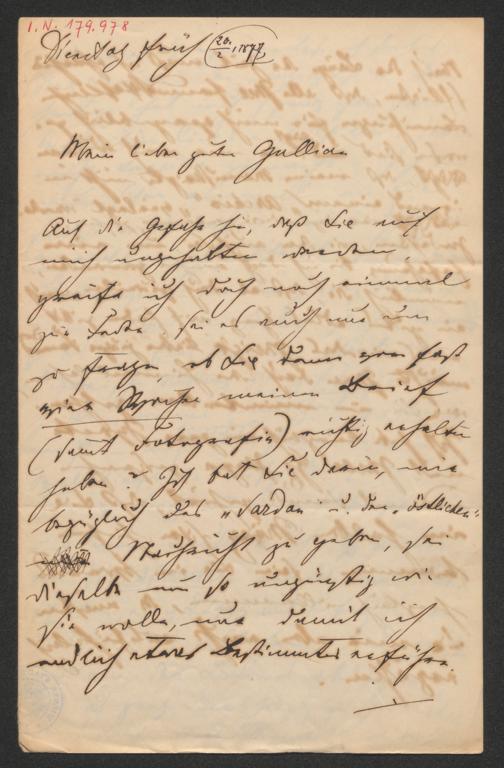 I.N. 179.978
Dienstag früh (20./2. 1877)
Mein lieber guter Gallian
Auf die Gefahr hin, daß Sie auf
mich ungehalten werden,
greife ich doch noch einmal
zur Feder, sei es auch nur um
zu fragen, ob Sie denn vor fast
vier Wochen meinen Brief
(samt Fotografie) richtig erhalten
haben? Ich bat Sie darin, mir
bezüglich des „Sardan" u. des „Östlichen"
Nachricht zu geben, sei
dieselbe nun so ungünstig wie
sie wolle, nur damit ich
endlich etwas Bestimmtes erführe.